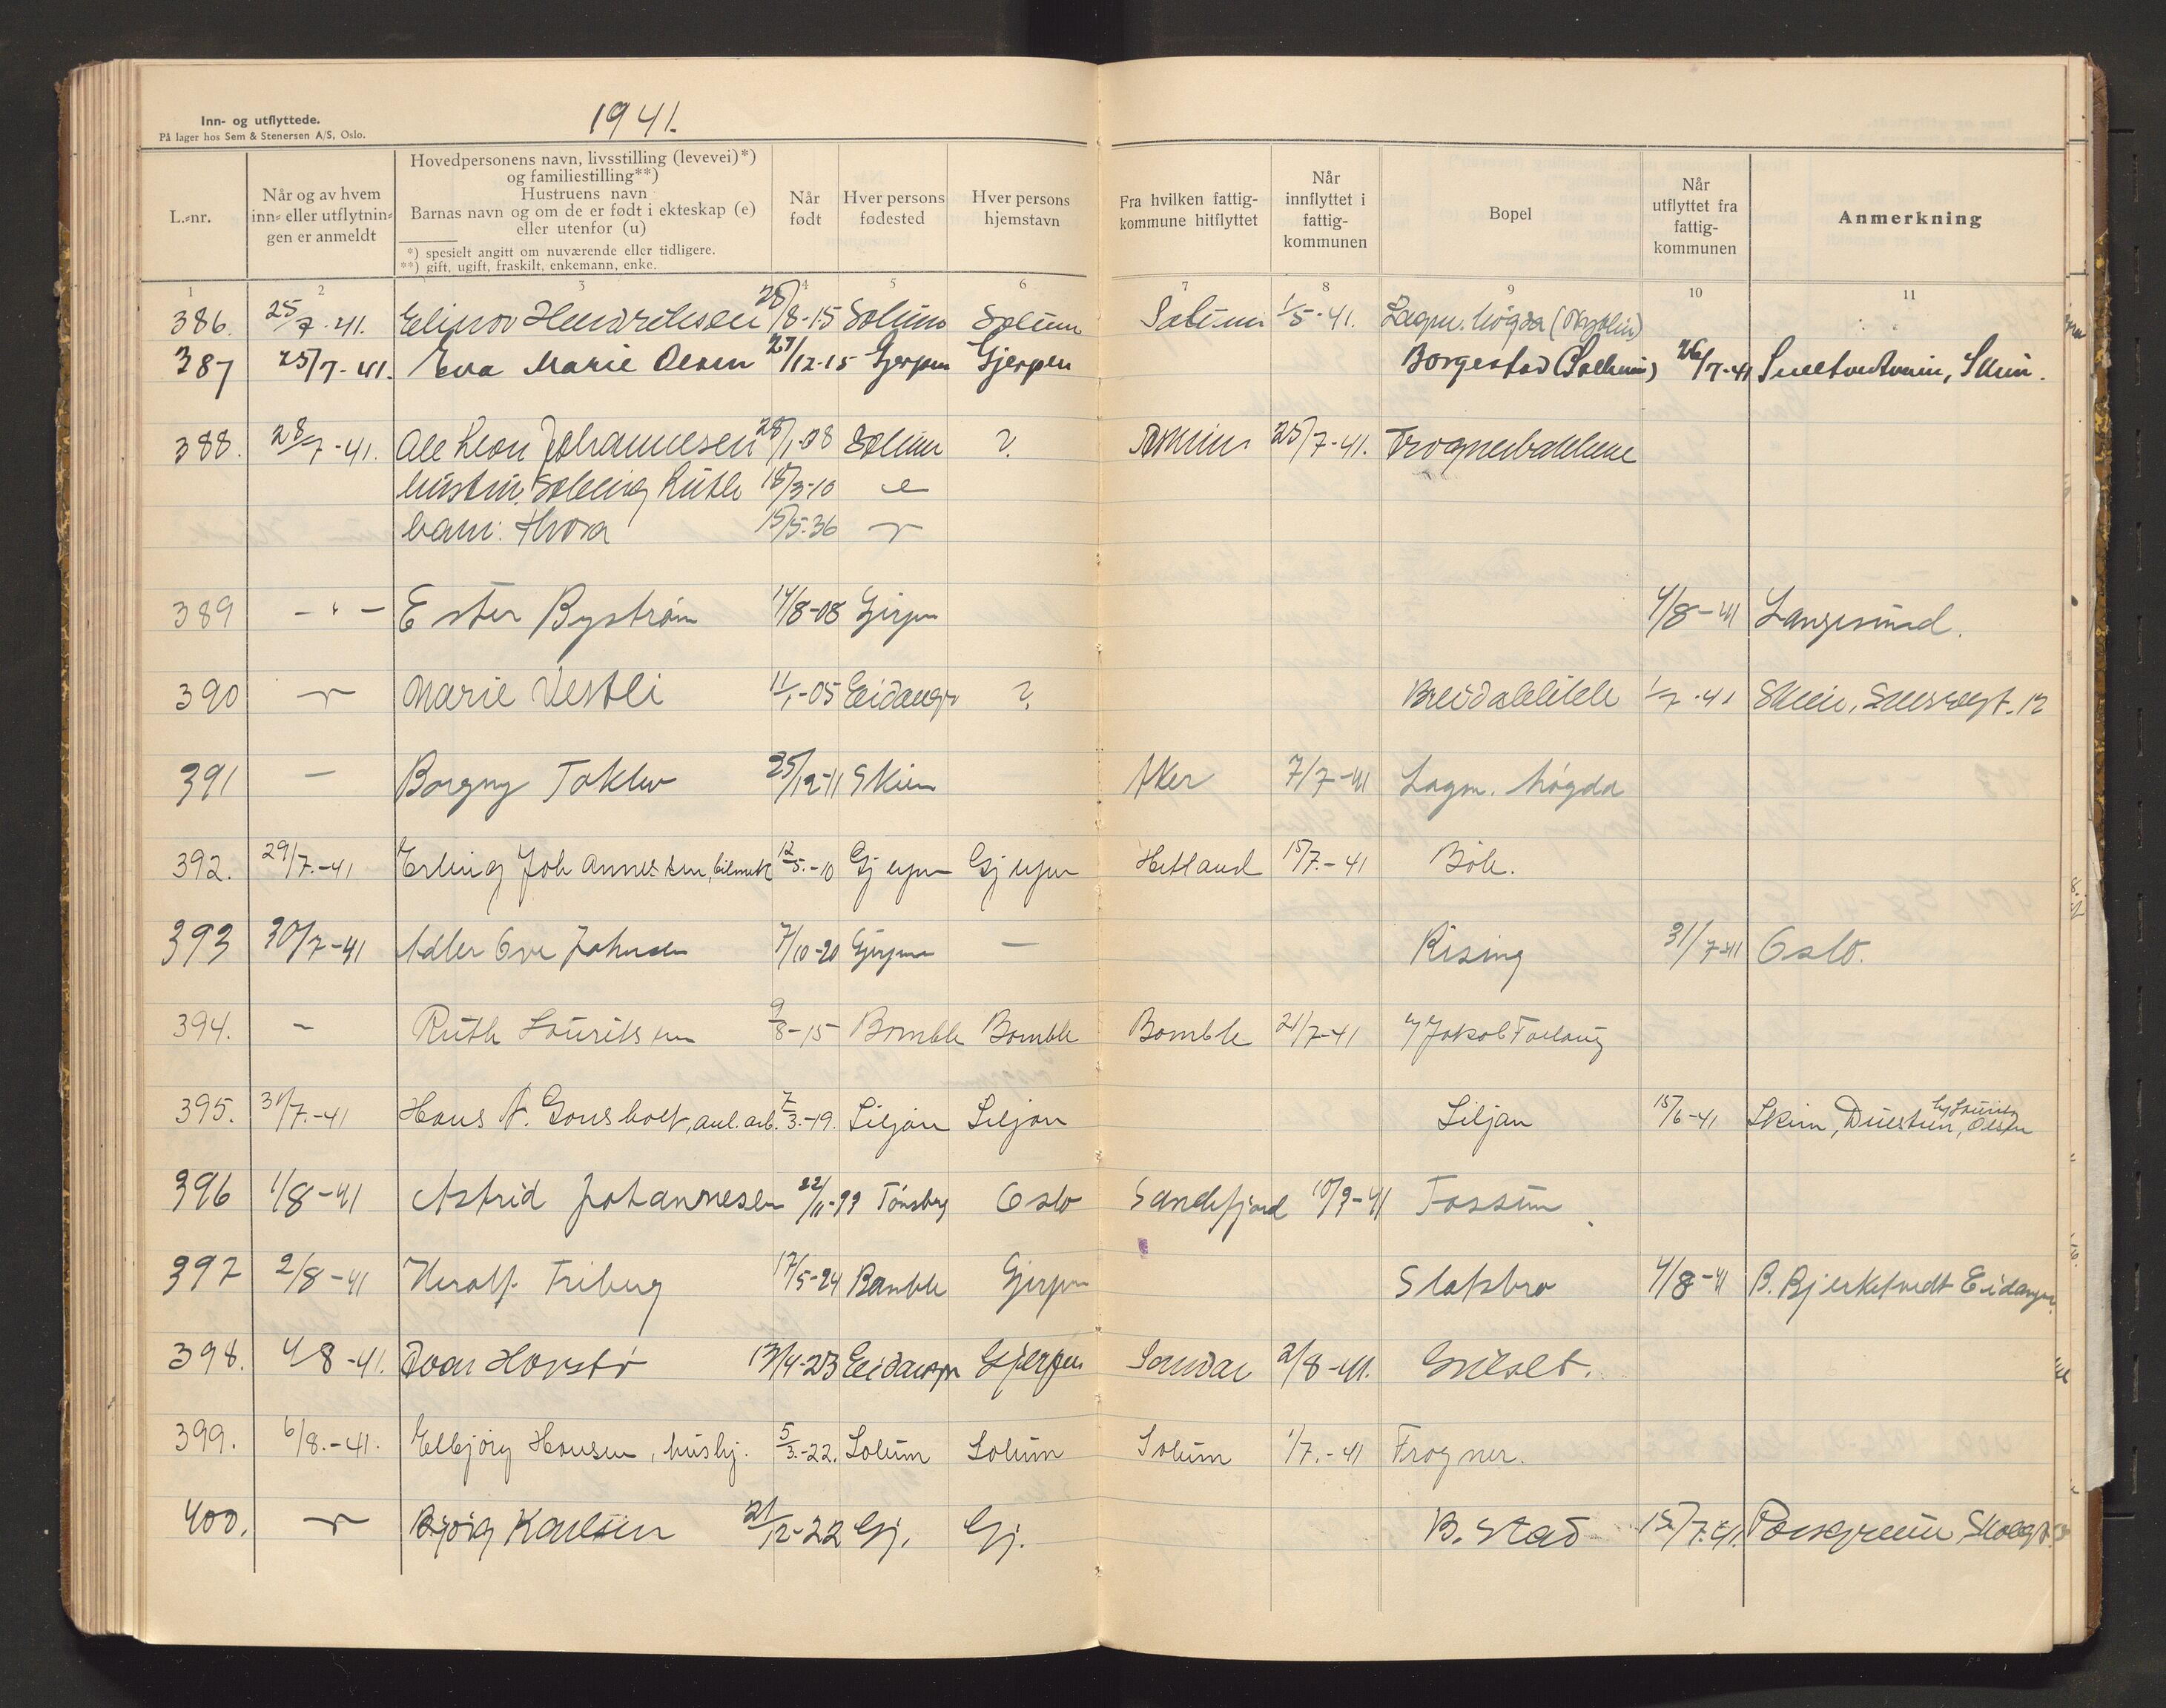 Inn- og utflyttede.
På lager hos Sem & Stenersen A/S, Oslo.
1941.
L.-nr.
Når og av hvem
inn- eller utflytnin-
gen er anmeldt
Hovedpersonens navn, livsstilling (levevei)*)
og familiestilling**)
Hustruens navn
Barnas navn og om de er født i ekteskap (e)
eller utenfor (u)
*) spesielt angitt om nuværende eller tidligere.
**) gift, ugift, fraskilt, enkemann, enke.
Når
født
Hver persons
fødested
Hver persons
hjemstavn
Fra hvilken fattig-
kommune hitflyttet
Når
innflyttet i
fattig-
kommunen
Bopel
Når
utflyttet fra
fattig-
kommunen
Anmerkning
1 2 3 4 5 6 7 8 9 10 11
386. 25/7-41. Elinor Henriksen 28/8-15 Solum Solum Solum 1/5-41. Lagm. høgda
387 25/7-41. Eva Marie Olsen 27/12-15 Gjerpen Gjerpen Borgestad 26/7-41 Skien.
388. 28/7-41. Ole Leon Johannesen 28/1-08 Solum ? 25/7-41. Frognerbakkene
hustru: Solveig Ruth 18/3-10
barn: Thora 15/5-36
389 -"- Ester Bystrøm 14/8-08 Gjerpen 4/8-41 Langesund.
390 Marie Vestli 11/1-05 Eidanger ? 1/7-41 Skien, 12
391 — Borgny Toklev 25/12-11 Skien Aker 7/7-41 Lagm. høgda
392. 29/7.-41 Erling Johannessen, 12/5.-10 Gjerpen Gjerpen Hetland 15/7.-41 Bøle.
393 30/7-41 Adler Ove Johnsen 7/10-20 Gjerpen — Rising 31/7-41 Oslo.
394. — Ruth Lauritsen 9/8-15 Bamble Bamble Bamble 21/7-41
395. 31/7.-41 Hans N. Gonsholt, anl. arb. 7/3.-19. Siljan Siljan Siljan 15/6-41 Skien, Duestien, Olsen
396 1/8-41 Astrid Johannesen 22/11-99 Tønsberg Oslo Sandefjord 10/7-41 Fossum
397 2/8-41 Herolf Friberg 17/5-24 Bamble Gjerpen Slotsbro 4/8-41 B. Bjerketvedt Eidanger
398. 4/8-41. Ivar Havstø 13/4-23 Eidanger Gjerpen Sandar 2/8-41.
399. 6/8.-41. Elbjørg Hansen, hushj. 5/3.-22. Solum Solum Solum 1/7.-41 Frogner.
400. Bjørg Karlsen 21/12-22 Gj. Gj. B. stad 15/7.41. Porsgrunn Skolegt.